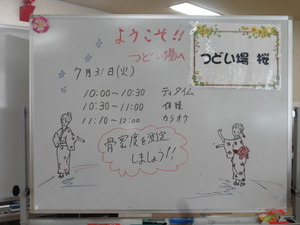 ようこそ!!
つどい場へ
つどい場 桜
7月31日(火)
10:00~10:30 ティタイム
10:30~11:00 体操
11:10~12:00 カラオケ
骨密度を測定
しましょう!!